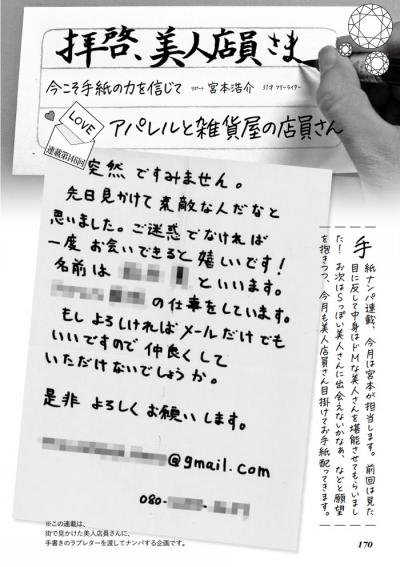 拝啓、美人店員さま
今こそ手紙の力を信じて リポート 宮本浩介 37才 フリーライター
LOVE
連載第146回
アパレルと雑貨屋の店員さん
突然ですみません。
先日見かけて素敵な人だなと
思いました。ご迷惑でなければ
一度お会いできると嬉しいです!
名前は といいます。
の仕事をしています。
もしよろしければメールだけでも
いいですので仲良くして
いただけないでしょうか。
是非よろしくお願いします。
@gmail.com
080-
手紙ナンパ連載、今月は宮本が担当します。前回は見た
目に反して中身はドMな美人さんを堪能させてもらいまし
た!お次はSっぽい美人さんに出会えないかなぁ、などと願望
を抱きつつ、今月も美人店員さん目掛けてお手紙配ってきます。
※この連載は、
街で見かけた美人店員さんに、
手書きのラブレターを渡してナンパする企画です。
170